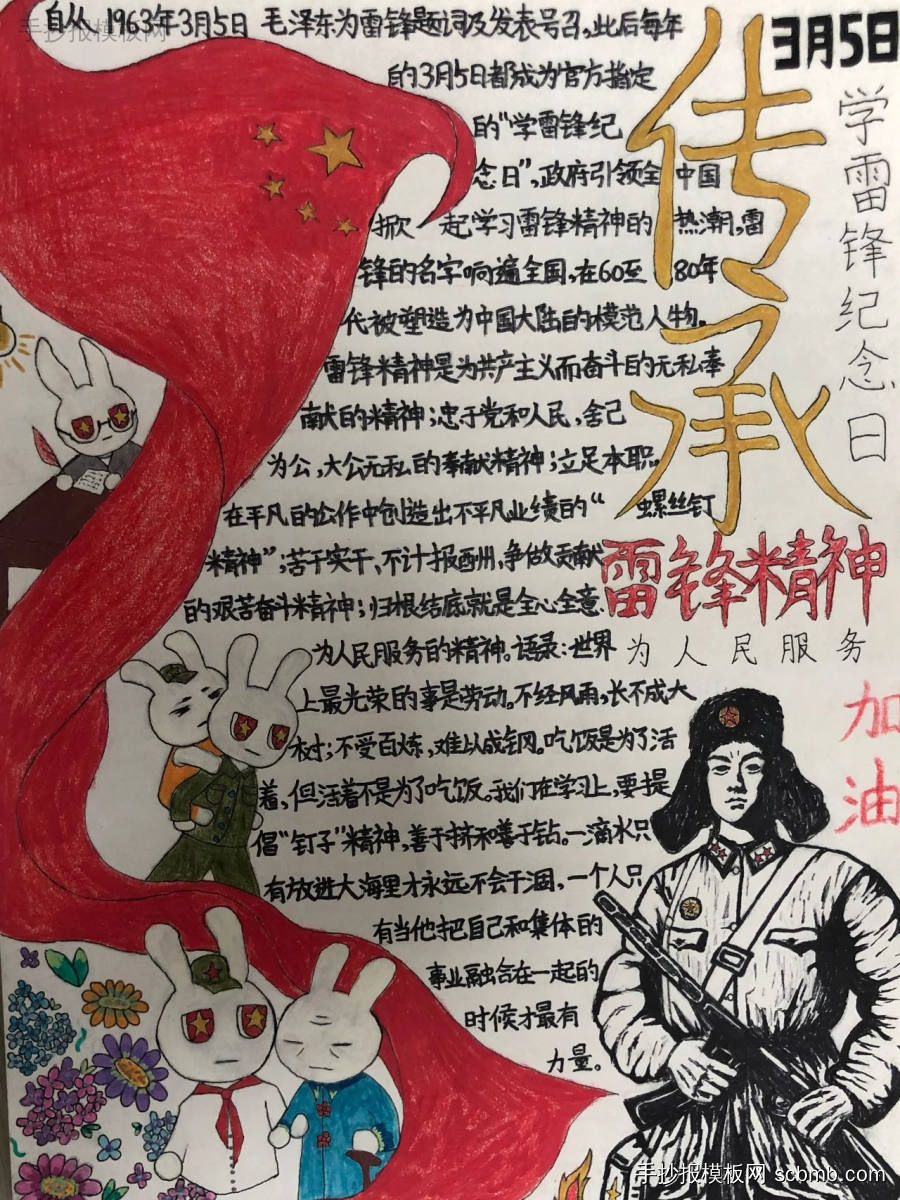 自从 1963年3月5日 毛泽东为雷锋题词及发表号召，此后每年
的3月5日都成为官方指定
的“学雷锋纪
念日”，政府引领全 中国
掀 起学习雷锋精神的 热潮，雷
锋的名字响遍全国，在60至 80年
代被塑造为中国大陆的模范人物。
雷锋精神是为共产主义而奋斗的无私奉
献的精神；忠于党和人民，舍己
为公，大公无私的奉献精神；立足本职。
在平凡的公作中创造出不平凡业绩的“ 螺丝钉
精神”；苦干实干、不计报酬，争做贡献
的艰苦奋斗精神；归根结底就是全心全意
为人民服务的精神。语录：世界
上最光荣的事是劳动。不经风雨。长不成大
树；不受百炼，难以成钢。吃饭是为了活
着，但活着不是为了吃饭。我们在学习上，要提
倡“钉子”精神，善于挤和善于钻。一滴水只
有放进大海里才永远不会干涸，一个人只
有当他把自己和集体的
事业融合在一起的
时候才最有
力量。
3月5日
学雷锋纪念日
传承
雷锋精神
为人民服务
加油
手抄报模板网
手抄报模板网 scbmb.com